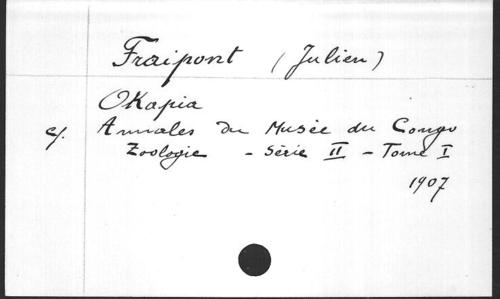 Fraipont (Julien)
Okapia
Annales du Musée du Congo
Zoologie - Série II - Tome I
1907